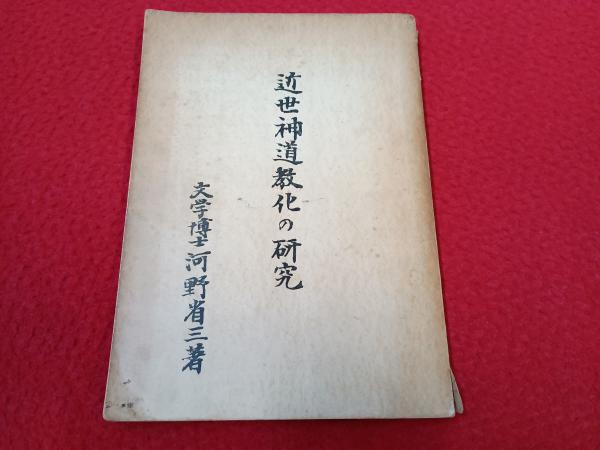 近世神道教化の研究
文学博士 河野省三著